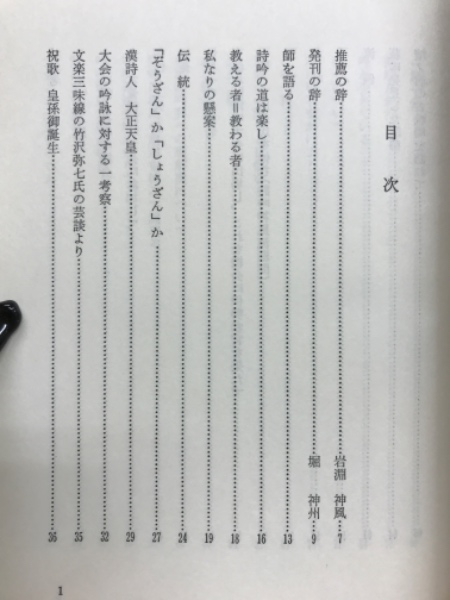 目次
推薦の辞 岩淵 神風 7
発刊の辞 堀 神州 9
師を語る 13
詩吟の道は楽し 16
教える者=教わる者 18
私なりの懸案 19
伝統 24
「ぞうざん」か「しょうざん」か 27
漢詩人 大正天皇 29
大会の吟詠に対する一考察 32
文楽三味線の竹沢弥七氏の芸談より 35
祝歌 皇孫御誕生 36
1